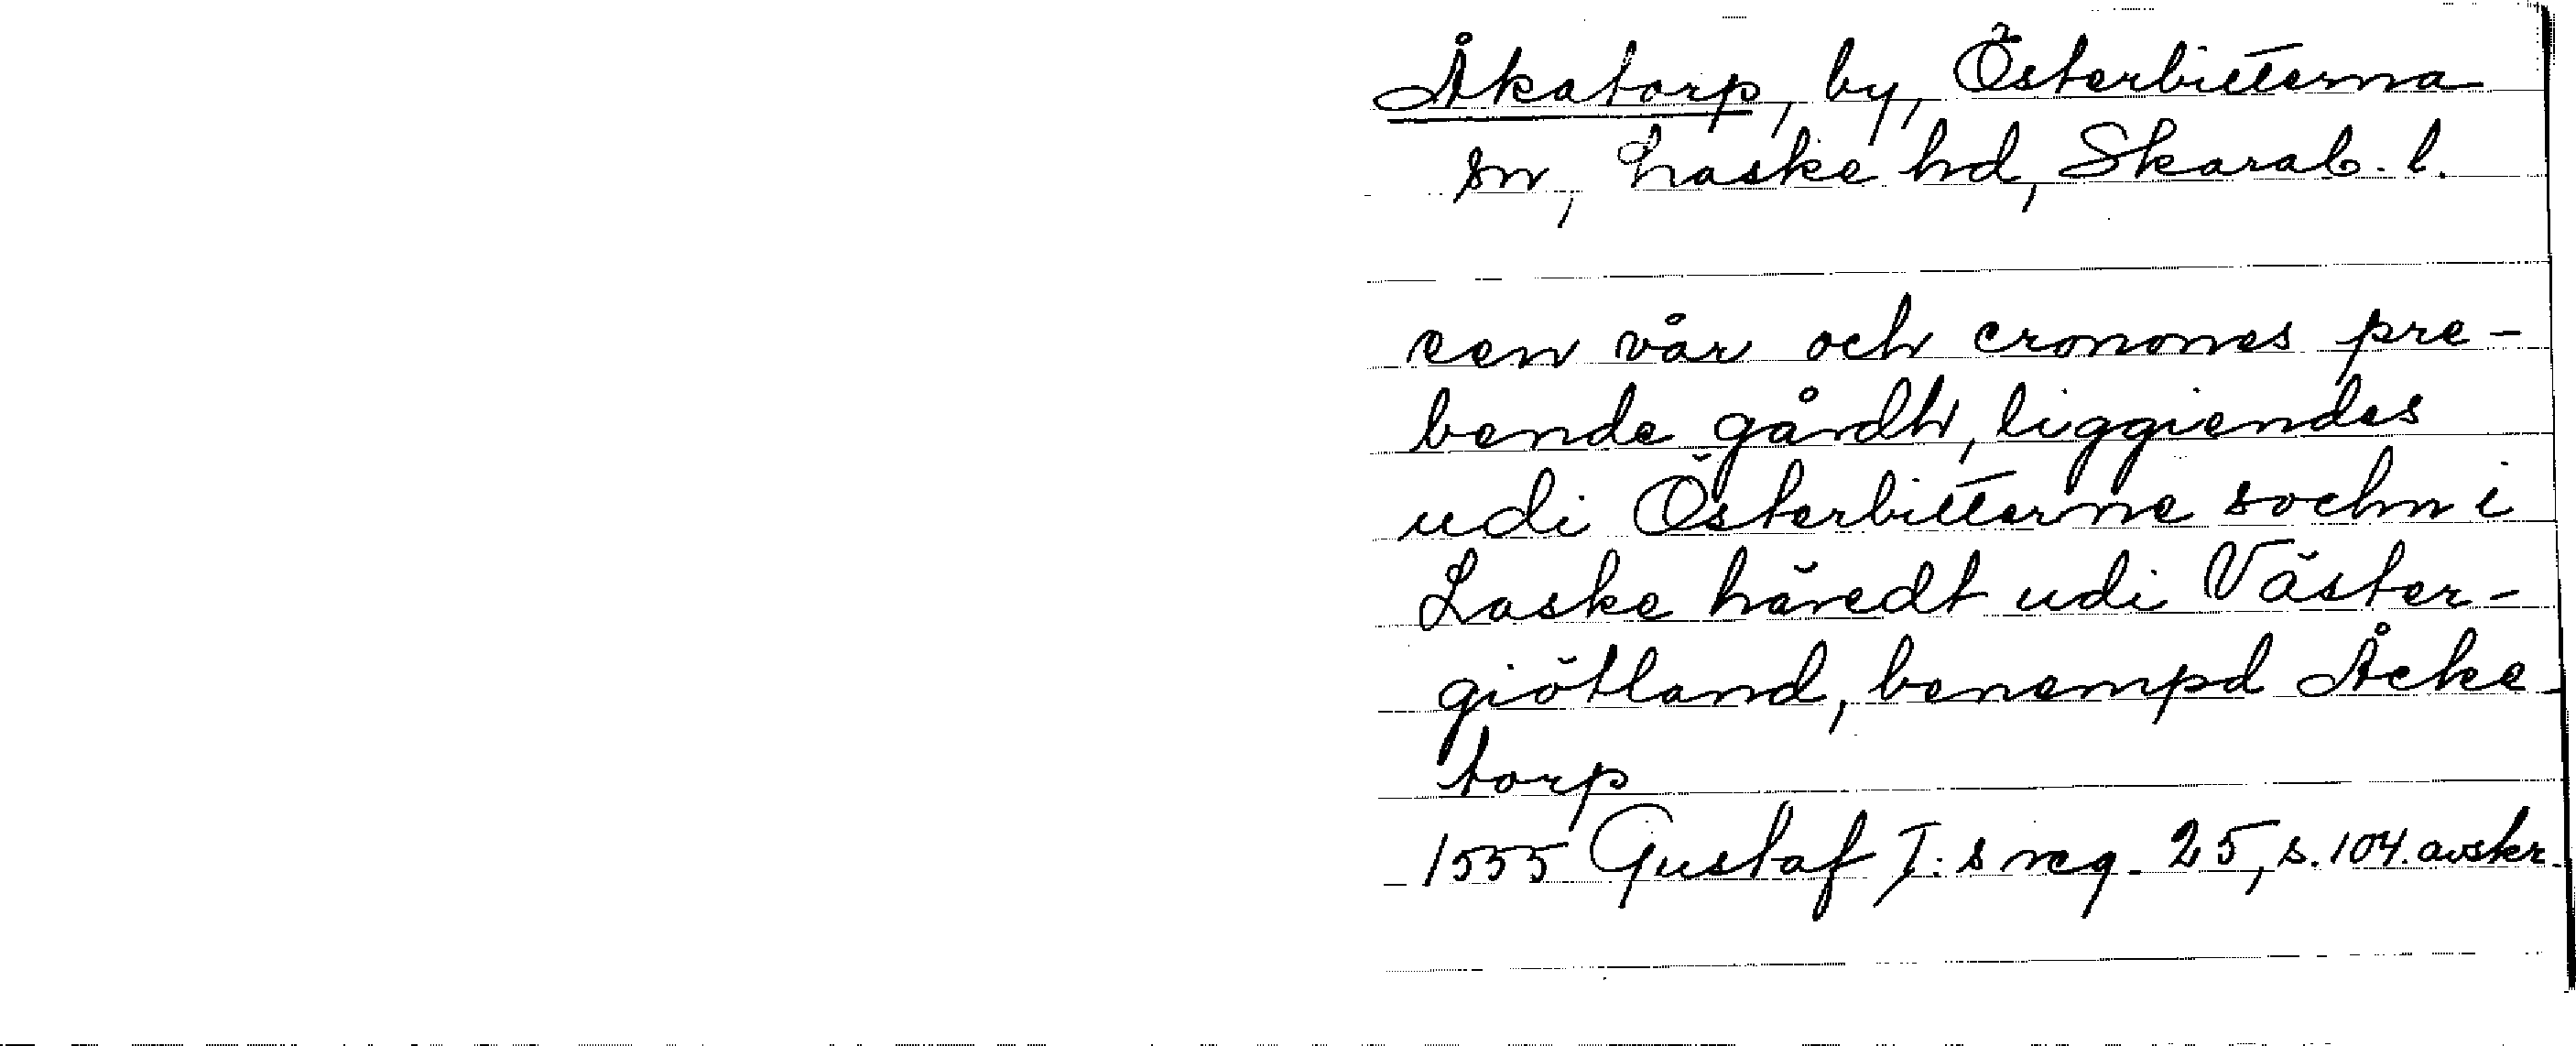 Åkatorp, by, Österbitterna
sn, Laske hd, Skarab. l.
een vår och cronones pre-
bende gårdh, liggiendes
udi Österbitterne sochn i
Laske häredt udi Väster-
giötland, benempd Åcke
torp
1555 Gustaf I:s reg. 25, s. 104. avskr.